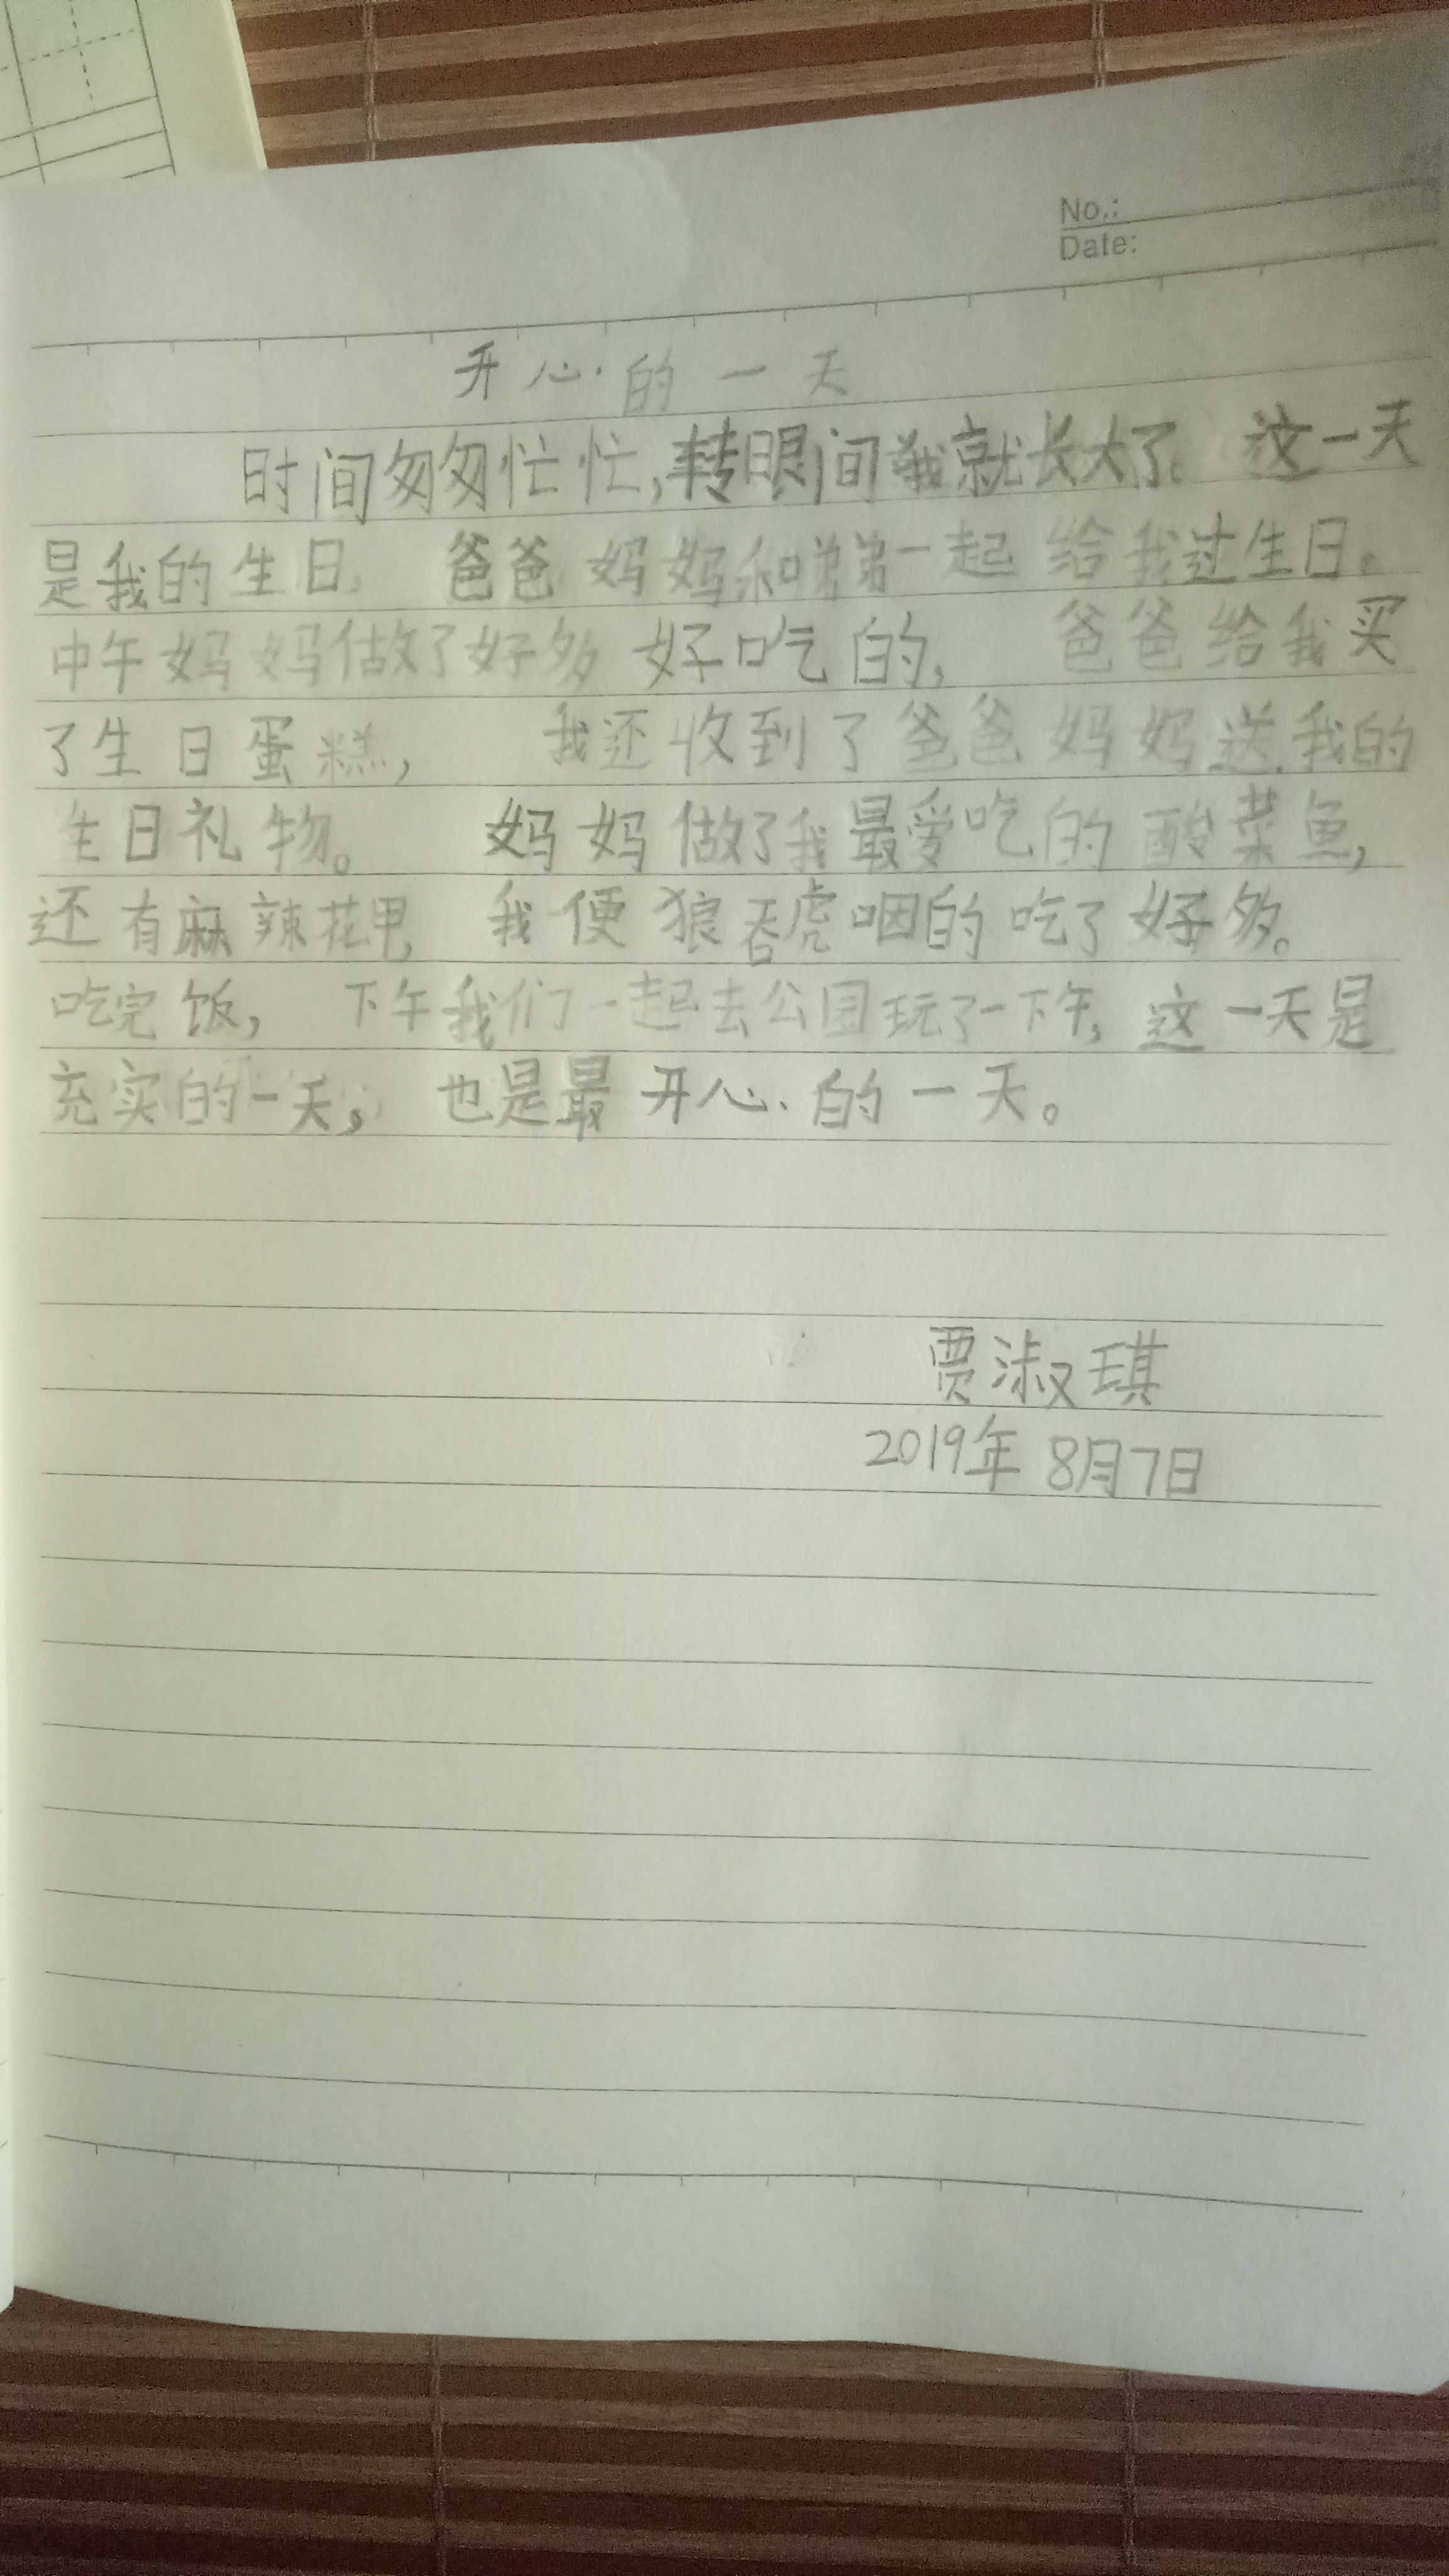 No.:
Date:
开心的一天
时间匆匆忙忙,转眼间我就长大了。这一天
是我的生日。爸爸妈妈和弟弟一起给我过生日。
中午妈妈做了好多好吃的,爸爸给我买
了生日蛋糕,我还收到了爸爸妈妈送我的
生日礼物。妈妈做了我最爱吃的酸菜鱼,
还有麻辣花甲,我便狼吞虎咽的吃了好多。
吃完饭,下午我们一起去公园玩了一下午,这一天是
充实的一天,也是最开心的一天。
贾淑琪
2019年8月7日